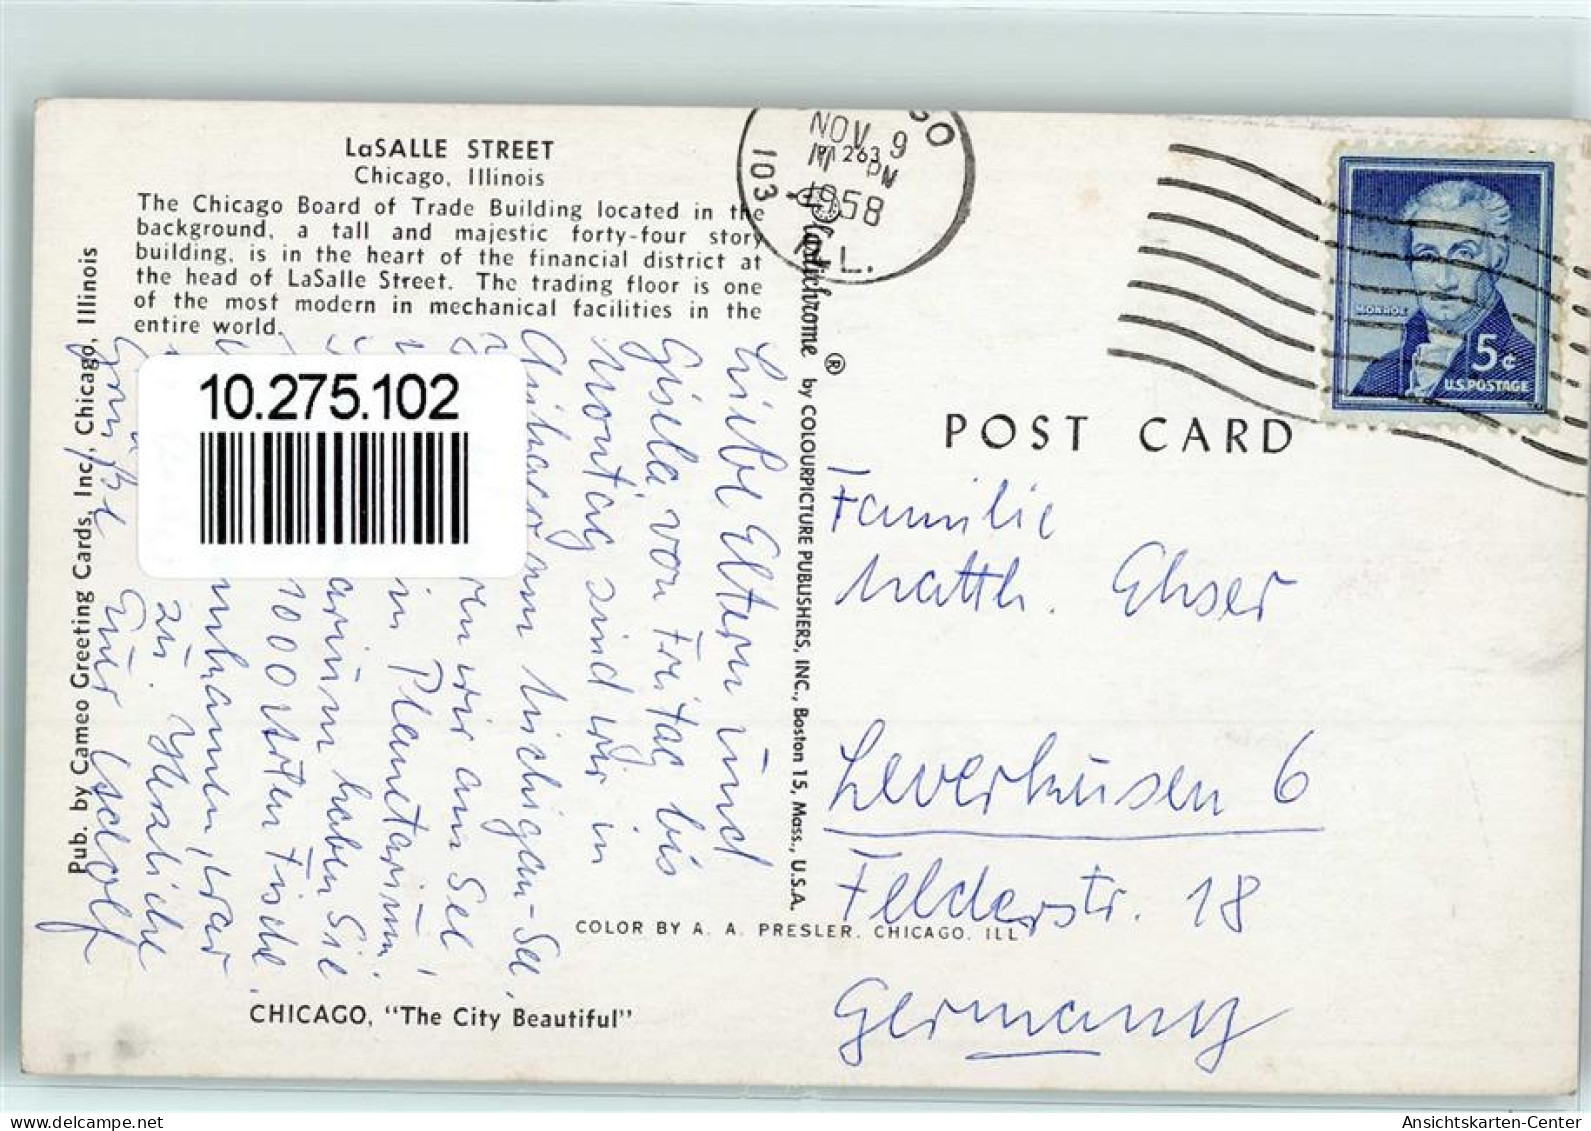 LaSALLE STREET
Chicago, Illinois
The Chicago Board of Trade Building located in the
background, a tall and majestic forty-four story
building, is in the heart of the financial district at
the head of LaSalle Street. The trading floor is one
of the most modern in mechanical facilities in the
entire world.
Pub. by Cameo Greeting Cards, Inc., Chicago, Illinois
10.275.102
Liebe Eltern und
Gisela von Freitag bis
Montag sind wir in
Chicago am Michigan-See.
wir am See
in Planetarium.
arium haben Sie
1000 Arten Fische
war
zu. Herzliche
Grüße Euer Adolf
CHICAGO, "The City Beautiful"
COLOR BY A. A. PRESLER, CHICAGO, ILL
Plastichrome ® by COLOURPICTURE PUBLISHERS, INC., Boston 15, Mass., U.S.A.
GO
NOV 9
263
PM
1958
103
ILL.
MONROE
5¢
U.S. POSTAGE
POST CARD
Familie
Matth. Elser
Leverkusen 6
Felderstr. 18
Germany
Ansichtskarten-Center